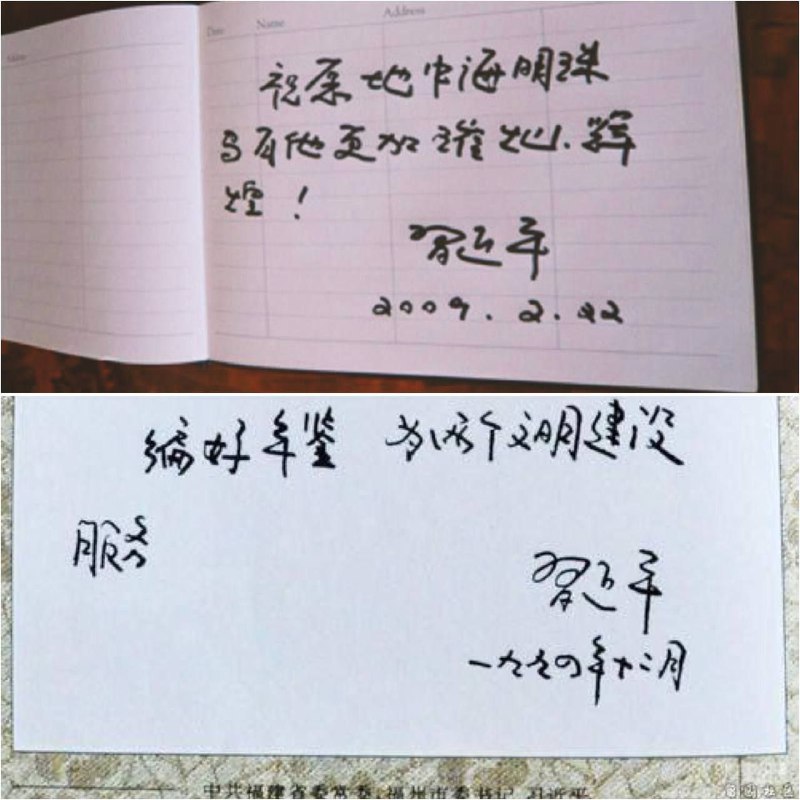 Date Name Address
祝愿地中海明珠
马耳他更加璀灿、辉
煌！
習近平
2009.2.22
编好年鉴 为两个文明建设
服务
習近平
一九九四年十二月
中共福建省委常委、福州市委书记 习近平